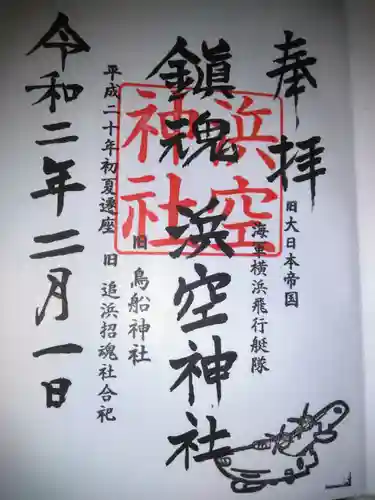 奉拝
旧大日本帝国
海軍横浜飛行艇隊
鎮魂 浜空神社
浜空神社
旧 鳥船神社
平成二十年初夏遷座 旧 追浜招魂社合祀
令和二年二月一日